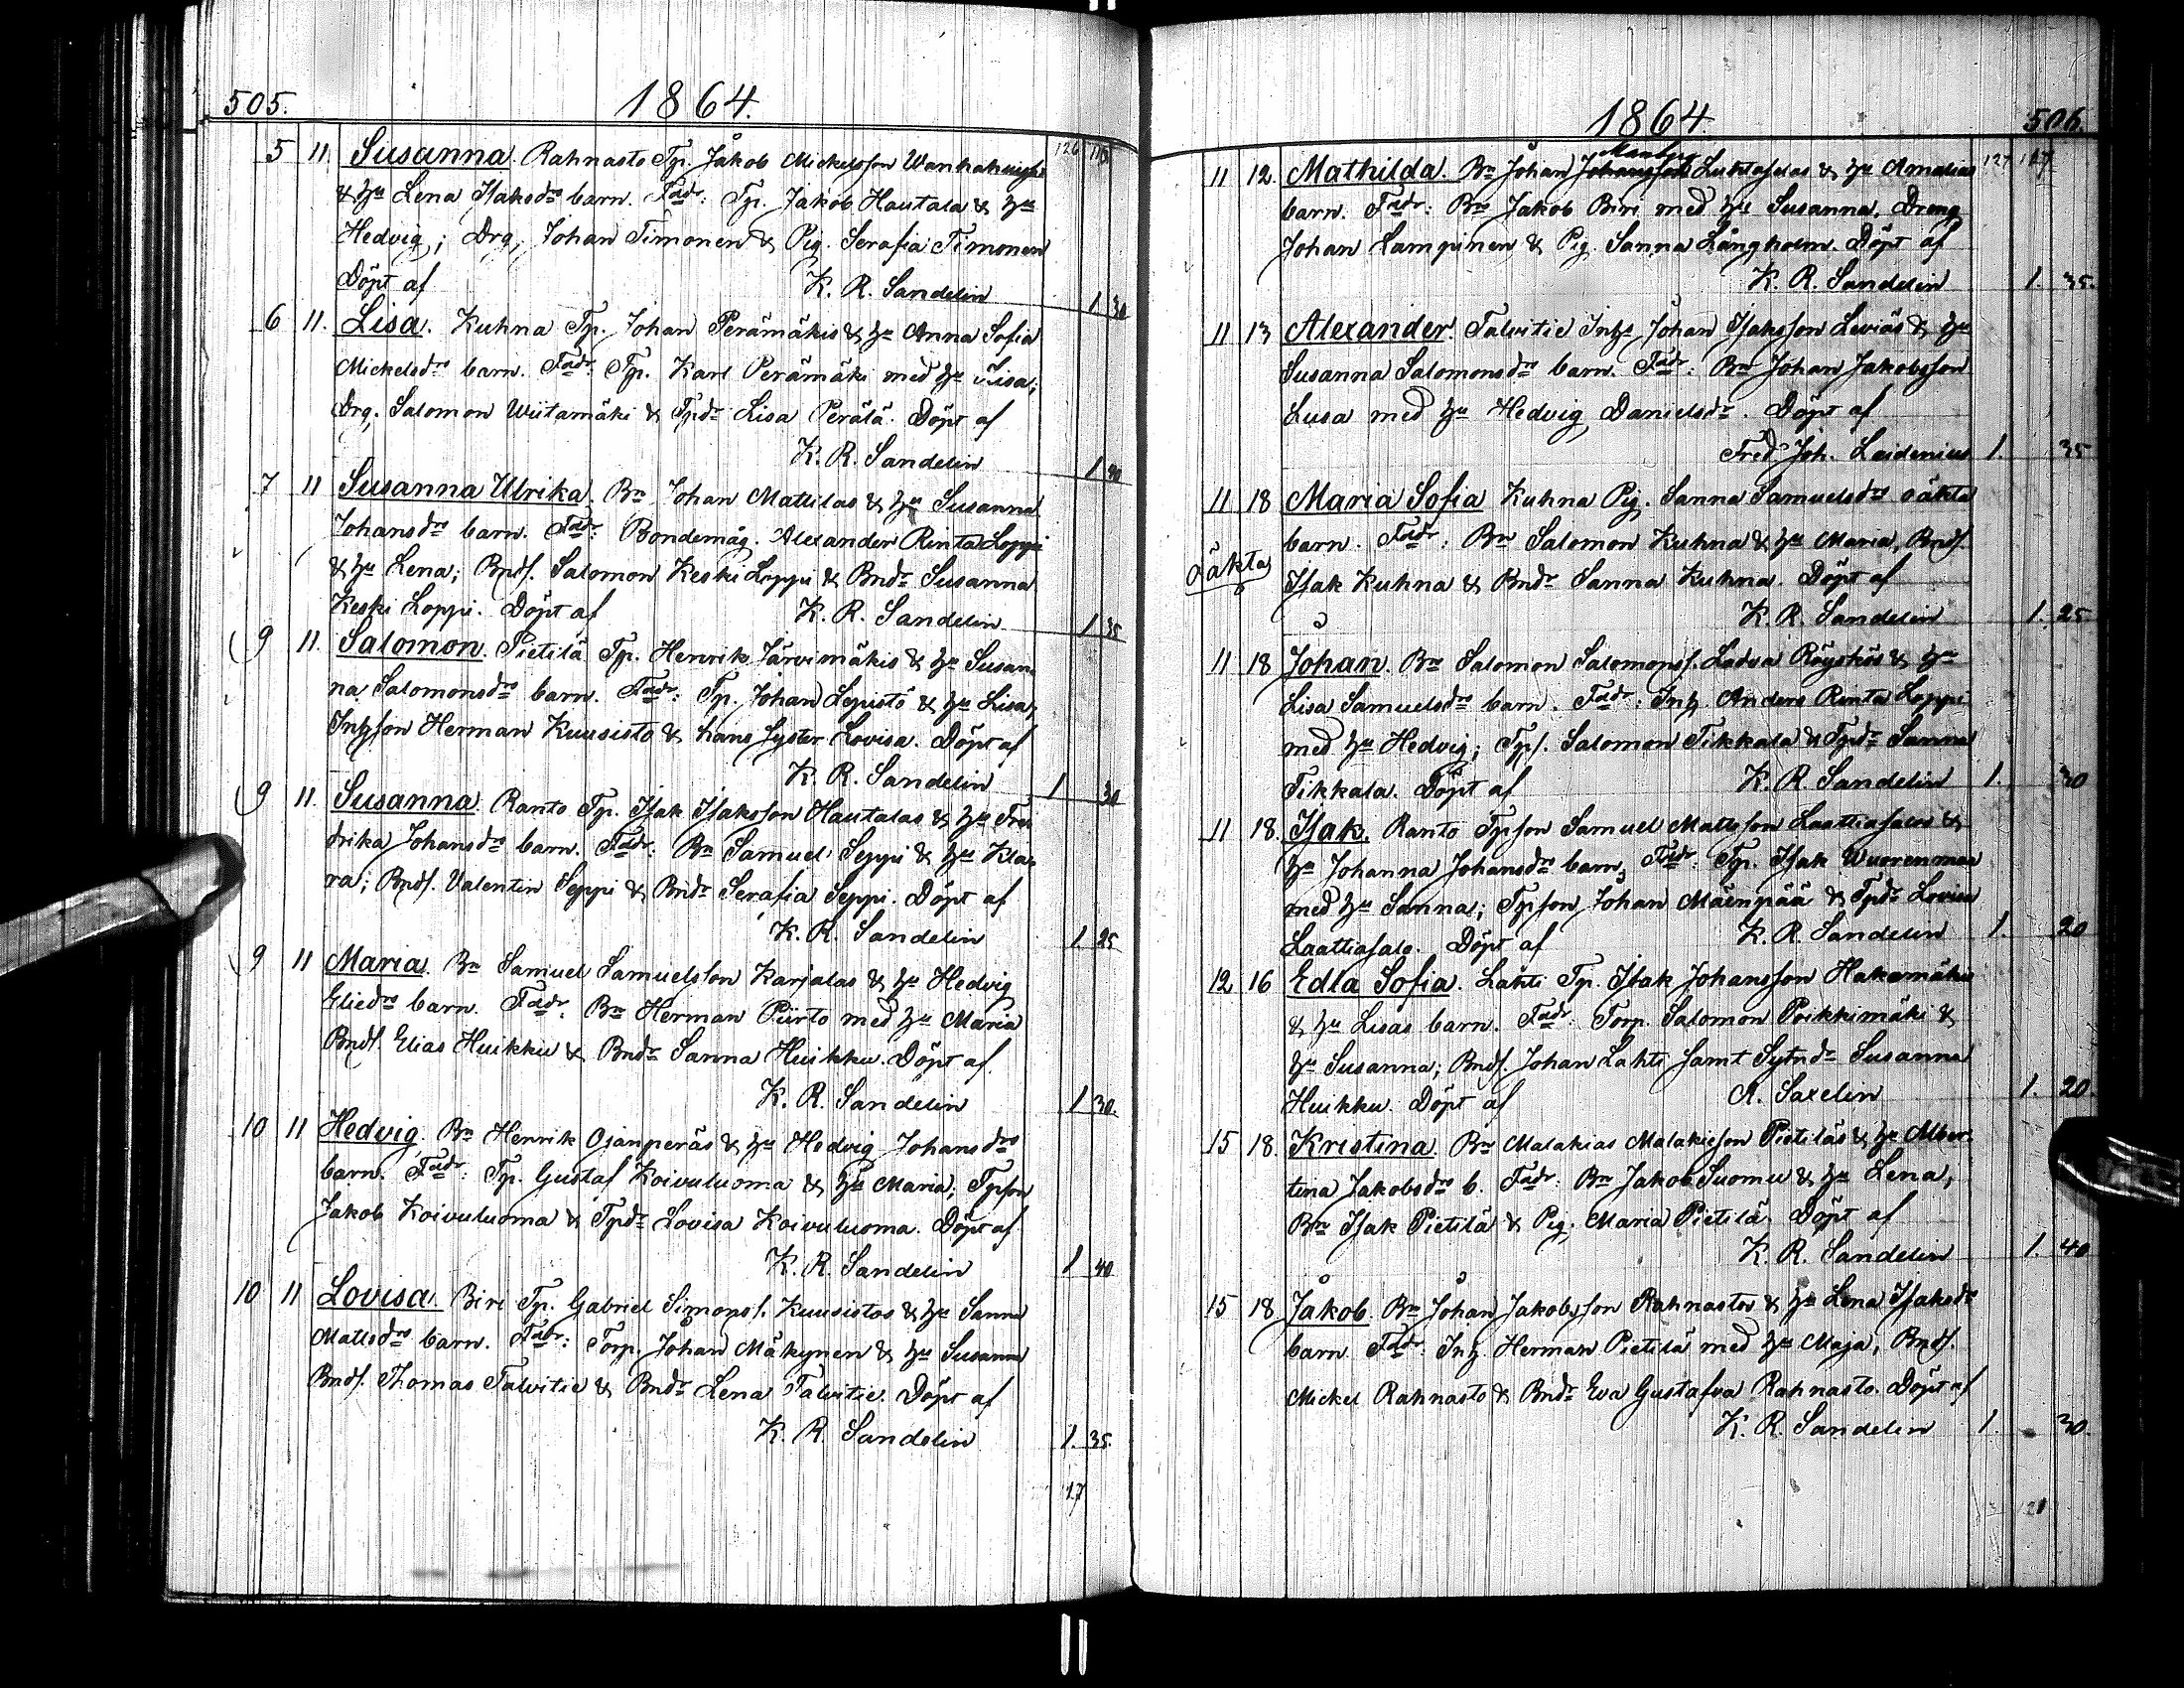 505.
1864.
126 116
5 11. Susanna. Rahnasto Tp. Jakob Mickelsson
& hu Lena Isaksdrs barn. Fadr: Tp. Jakob Hautala & hu
Hedvig; Drg. Johan Timonen & Pig. Serafia Timonen
Döpt af K. R. Sandelin 1 30
6 11. Lisa. Kuhna Tp. Johan Perämäkis & hu Anna Sofia
Mickelsdrs barn. Fadr: Tp. Karl Perämäki med hu Lisa;
Drg. Salomon Wiitamäki & Tpdr Lisa Perälä. Döpt af
K. R. Sandelin 1 40
7 11 Susanna Ulrika. Bn Johan Mattilas & hu Susanna
Johansdrs barn. Fadr: Bondemåg. Alexander Rinta Loppi
& hu Lena; Bnds. Salomon Keski Loppi & Bndr Susanna
Keski Loppi. Döpt af K. R. Sandelin 1 35
9 11. Salomon. Pietilä Tp. Henrik Järvimäkis & hu Susan-
na Salomonsdrs barn. Fadr: Tp. Johan Lepistö & hu Lisa;
Inhson Herman Kuusisto & hans syster Lovisa. Döpt af
K. R. Sandelin 1 30
9 11. Susanna. Ranto Tp. Isak Isaksson Hautalas & hu Fre-
drika Johansdrs barn. Fadr: Bn Samuel Seppi & hu Kla-
ra; Bnds. Valentin Seppi & Bndr Serafia Seppi. Döpt af
K. R. Sandelin 1. 25
9 11 Maria. Bn Samuel Samuelsson Karjalas & hu Hedvig
Eliedrs barn. Fadr: Bn Herman Piirto med hu Maria
Bnds. Elias Huikku & Bndr Sanna Huikku. Döpt af
K. R. Sandelin 1 30.
10 11 Hedvig. Bn Henrik Ojanperäs & hu Hedvig Johansdrs
barn. Fadr: Tp. Gustaf Koivuluoma & hu Maria; Tpson
Jakob Koivuluoma & Tpdr Lovisa Koivuluoma. Döpt af
K. R. Sandelin 1 40
10 11 Lovisa. Biri Tp. Gabriel Simonss. Kuusistos & hu Sanna
Mattsdrs barn. Fadr: Torp. Johan Mäkynen & hu Susanna
Bnds. Thomas Talvitie & Bndr Lena Talvitie. Döpt af
K. R. Sandelin 1. 35.
17
1864.
506.
127 117
Manberg
11 12. Mathilda. Bn Johan Johansson Luhtasalas & hu Amalias
barn. Fadr: Bn Jakob Biri med hu Susanna, Dreng
Johan Lampinen & Pig. Sanna Långholm. Döpt af
K. R. Sandelin 1. 35.
11 13 Alexander. Talvitie Inhs Johan Isaksson Leviäs & hu
Susanna Salomonsdrs barn. Fadr: Bn Johan Jakobsson
Lusa med hu Hedvig Danielsdr. Döpt af
Fred. Joh. Laidenius 1. 35
11 18 Maria Sofia Kuhna Pig. Sanna Samuelsdrs oäkta
barn. Fadr: Bn Salomon Kuhna & hu Maria, Bnds.
oäkta Isak Kuhna & Bndr Sanna Kuhna. Döpt af
K. R. Sandelin 1. 25
11 18 Johan. Bn Salomon Salomonss. Ladva Röyskös & hu
Lisa Samuelsdrs barn. Fadr: Inh. Anders Rinta Loppi
med hu Hedvig; Tps. Salomon Tikkala & Tpdr Sanna
Tikkala. Döpt af K. R. Sandelin 1. 30
11 18. Isak. Ranto Tpson Samuel Mattsson Laattiasalos &
hu Johanna Johansdrs barn, Fadr: Tp. Isak Wuorenmaa
med hu Sanna; Tpson Johan Mäenpää & Tpdr Lovisa
Laattiasalo. Döpt af K. R. Sandelin 1. 20
12 16 Edla Sofia. Lahti Tp. Isak Johansson Hakamäkis
& hu Lisas barn. Fadr: Torp. Salomon Poikkimäki &
hu Susanna; Bnds. Johan Lahti samt Sytndr Susanna
Huikku. Döpt af A. Saxelin 1. 20.
15 18. Kristina. Bn Malakias Malakiesson Pietiläs & hu Alber-
tina Jakobsdrs b. Fadr: Bn Jakob Suomu & hu Lena;
Bn Isak Pietilä & Pig. Maria Pietilä. Döpt af
K. R. Sandelin 1. 40
15 18 Jakob. Bn Johan Jakobsson Rahnastos & hu Lena Isaksdrs
barn. Fadr: Inh. Herman Pietilä med hu Maja; Bnds.
Mickel Rahnasto & Bndr Eva Gustafva Rahnasto. Döpt af
K. R. Sandelin 1. 30.
21